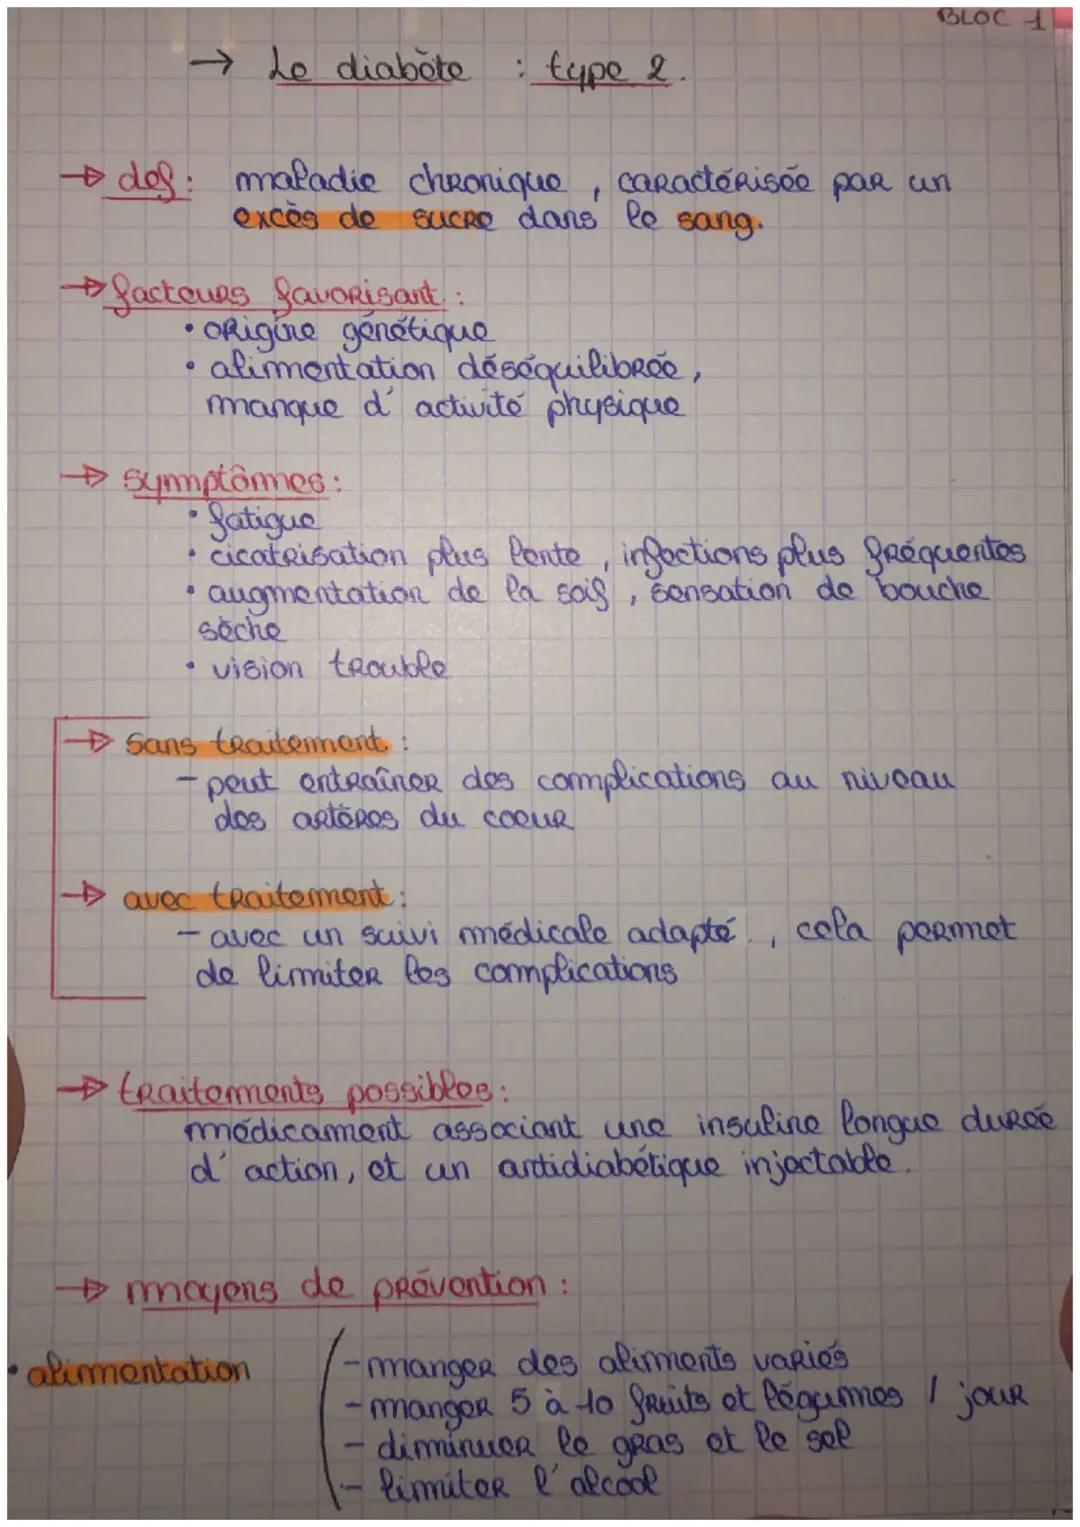 BLOC 1
→ Le diabète : type 2.
→ def : maladie chronique, caractérisée par un
excès de sucre dans le sang.
→ facteurs favorisant :
• origine génétique
• alimentation déséquilibrée,
manque d'activité physique
→ symptômes :
• fatigue
• cicatrisation plus lente, infections plus fréquentes
• augmentation de la soif, sensation de bouche
sèche
• vision trouble
→ Sans traitement :
- peut entraîner des complications au niveau
des artères du coeur
→ avec traitement :
- avec un suivi médicale adapté, cela permet
de limiter les complications
→ traitements possibles :
médicament associant une insuline longue durée
d'action, et un antidiabétique injectable.
→ moyens de prévention :
• alimentation
- manger des aliments variés
- manger 5 à 10 fruits et légumes / jour
- diminuer le gras et le sel
- limiter l'alcool